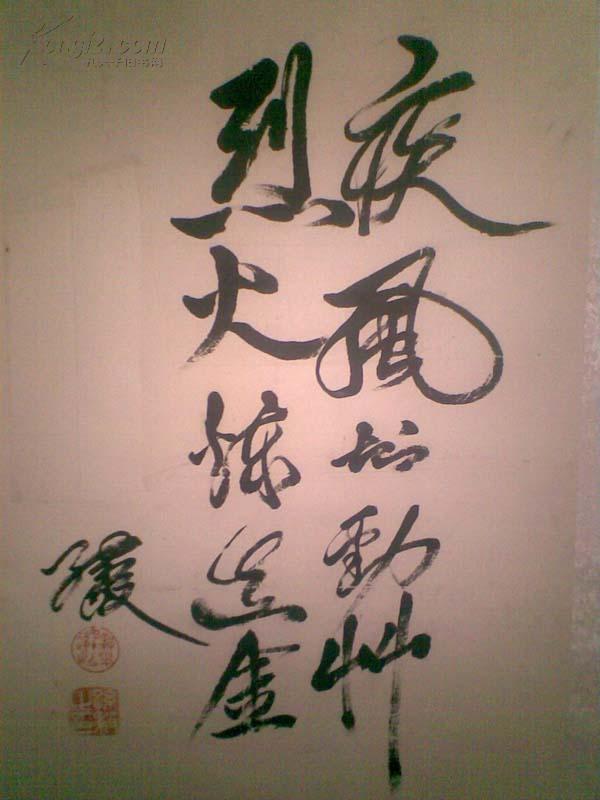 疾風知勁艸
烈火煉真金
Kongfz.com
孔夫子旧书网